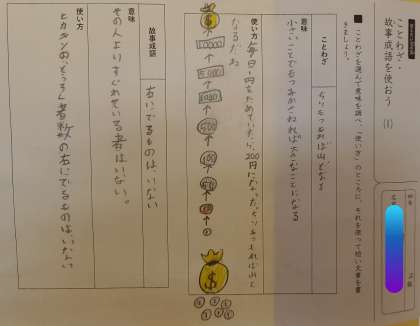 ことわざ・
故事成語を使おう (1)
ことわざを選んで意味を調べ、「使い方」のところに、それを使って短い文章を書
きましょう。
ことわざ
ちりもつもれば山となる
意味
小さいことでもつみかさねれば大きなことになる
使い方
毎日1円をためていたら、200円になった。ちりもつもれば山と
なるだね
10000
5000
1000
500
100
50
10
$
$
故事成語
右にでるものはいない
意味
その人よりすぐれている者はいない。
使い方
の右にでるものは、いない